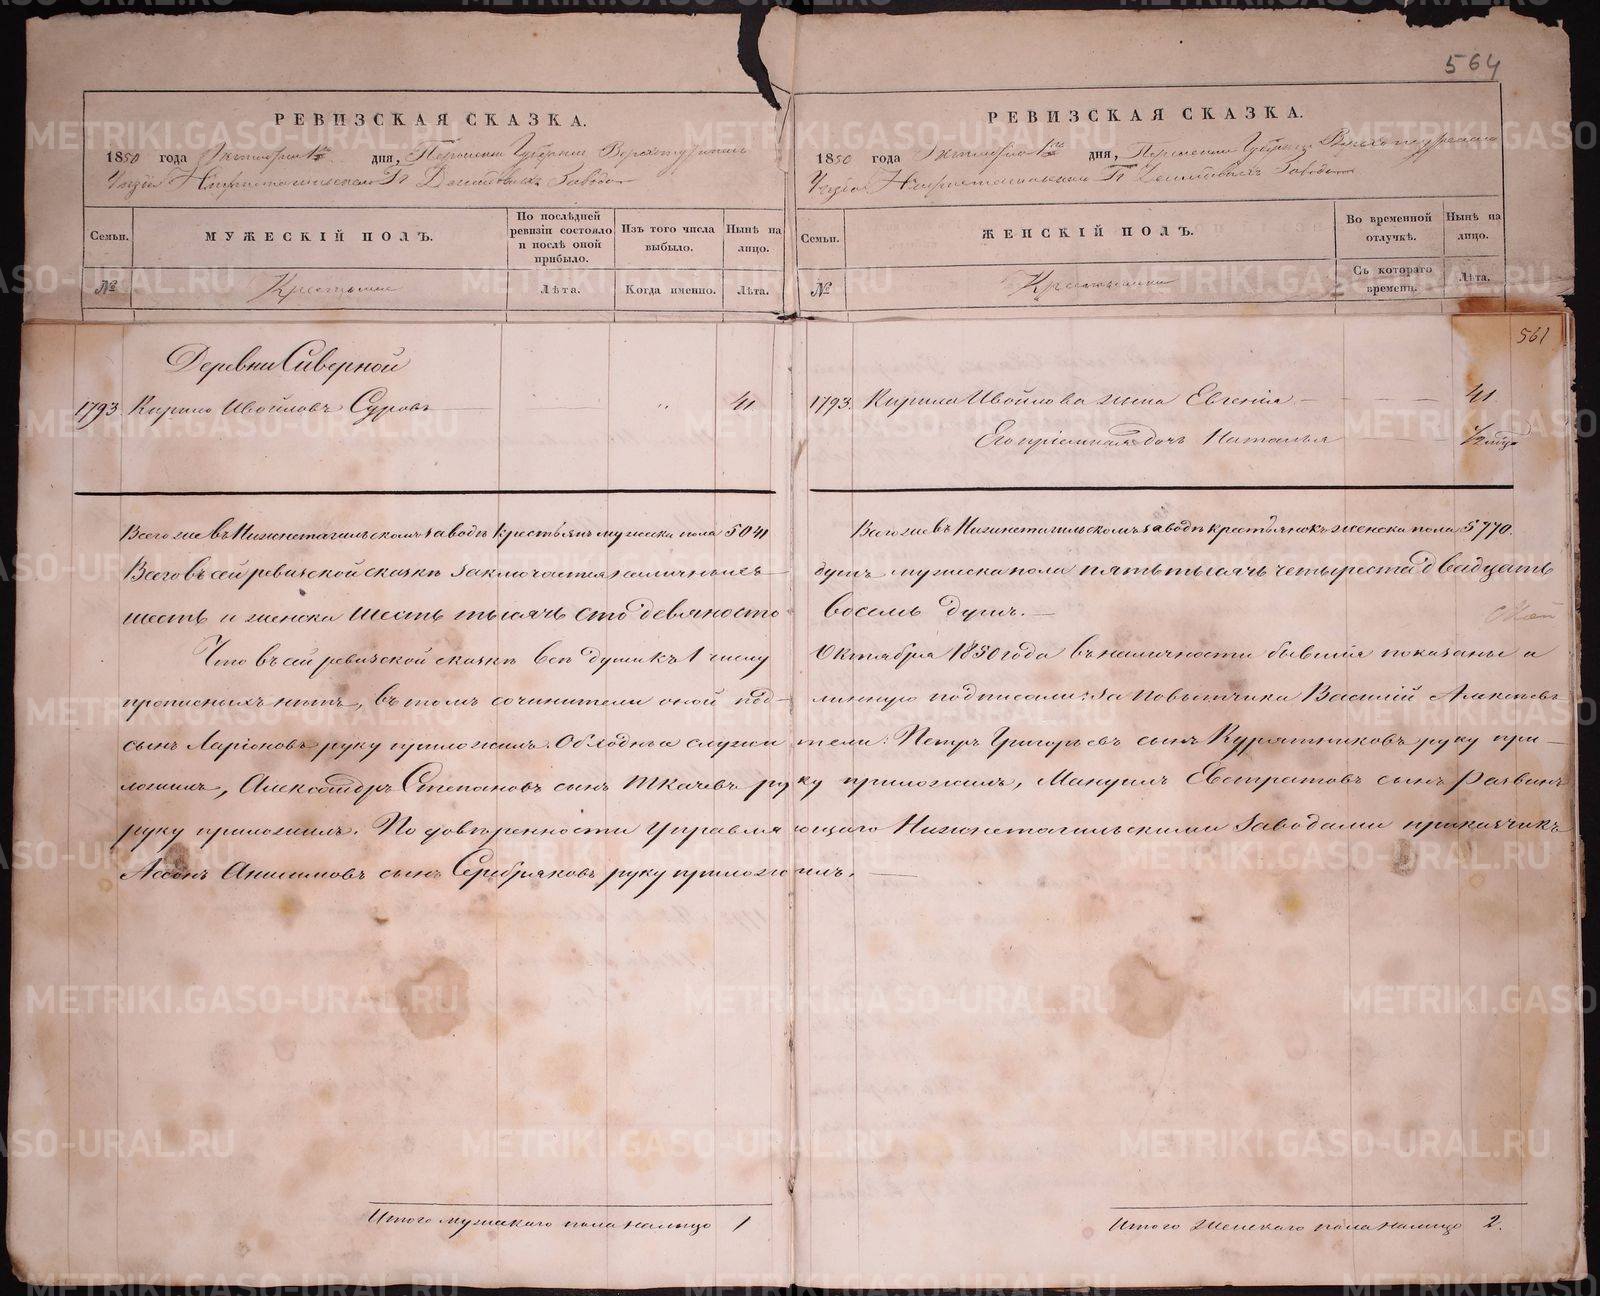 564
РЕВИЗСКАЯ СКАЗКА.
1850 года Октября 1го дня, Пермской Губернии Верхотурскаго
Уезда Нижнетагильскаго Гг Демидовыхъ Завода
Семьи.
МУЖЕСКІЙ ПОЛЪ.
По послѣдней ревизіи состояло и послѣ оной прибыло.
Изъ того числа выбыло.
Нынѣ на лицо.
№
Крестьяне
Лѣта.
Когда именно.
Лѣта.
Деревни Сиверной
1793. Кирило Ивойловъ Суровъ 41
Всего же въ Нижнетагильскомъ заводѣ крестьянъ мужеска пола 5041
РЕВИЗСКАЯ СКАЗКА.
1850 года Октября 1го дня, Пермской Губерніи Верхотурскаго
Уезда Нижнетагильскаго Гг Демидовыхъ Завода
Семьи.
ЖЕНСКІЙ ПОЛЪ.
Во временной отлучкѣ.
Нынѣ на лицо.
№
Крестьянки
Съ котораго времени.
Лѣта.
561
1793. Кирила Ивойлова жена Евгенія 41
Его пріемная дочь Наталья 1/2 года
Всего же въ Нижнетагильскомъ заводѣ крестьянокъ женска пола 5770.
Всего въ сей ревизской сказкѣ заключается наличныхъ душъ мужеска пола пять тысячь четыреста двадцать
шесть и женска шесть тысячь сто девяносто восемь душъ.
Что въ сей ревизской сказкѣ всѣ души къ 1 числу Октября 1850 года въ наличности бывшія показаны и
прописныхъ нѣтъ, въ томъ сочинители оной подлинную подписали: За Повытчика Василій Алексѣевъ
сынъ Ларіоновъ руку приложилъ. Обходные служители: Петръ Григорьевъ сынъ Курятниковъ руку при-
ложилъ, Александръ Степановъ сынъ Ткачевъ руку приложилъ, Мануилъ Евстратовъ сынъ Разинъ
руку приложилъ. По довѣренности Управляющаго Нижнетагильскими Заводами прикащикъ
Ассонъ Анисимовъ сынъ Серебряковъ руку приложилъ.
Итого мужскаго пола налицо 1
Итого женскаго пола налицо 2.
METRIKI.GASO-URAL.RU